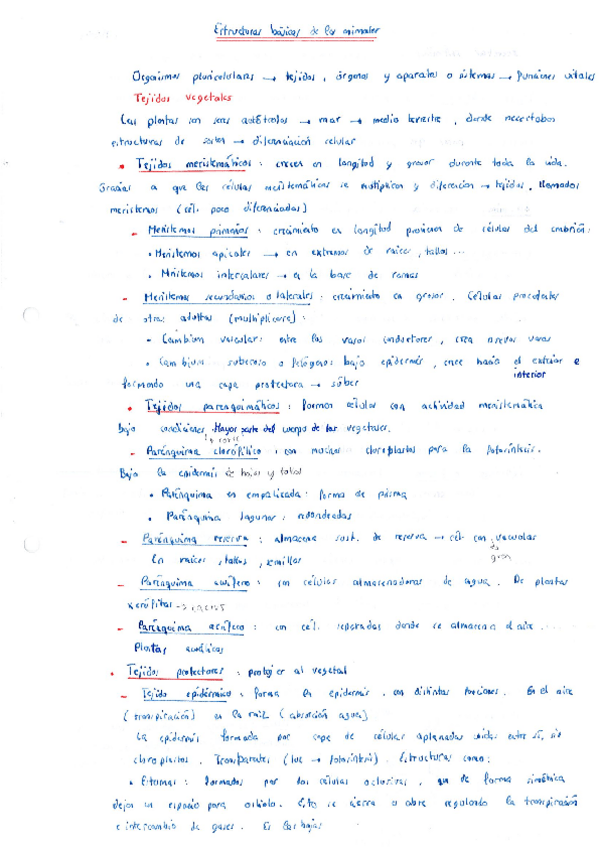 Estructuras básicas de los animales
Organismos pluricelulares → tejidos, órganos y aparatos o sistemas → funciones vitales
Tejidos vegetales
Las plantas son seres autótrofos → mar → medio terrestre, donde necesitaban
estructuras de sostén → diferenciación celular
• Tejidos meristemáticos: crecen en longitud y grosor durante toda la vida.
Gracias a que las células meristemáticas se multiplican y diferencian → tejidos, llamados
meristemos (cél. poco diferenciadas)
- Meristemos primarios: crecimiento en longitud provienen de células del embrión:
• Meristemos apicales → en extremos de raíces, tallos...
• Meristemos intercalares → en la base de ramas
- Meristemos secundarios o laterales: crecimiento en grosor. Células procedentes
de otras adultas (multiplicarse):
• Cambium vascular: entre los vasos conductores, crea nuevos vasos
• Cambium suberoso o felógeno: bajo epidermis, crece hacia el exterior e
interior
formando una capa protectora → súber
• Tejidos parenquimáticos: forman células con actividad meristemática
bajo condiciones. Mayor parte del cuerpo de los vegetales.
- Parénquima clorofílico: con muchos cloroplastos para la fotosíntesis.
Bajo la epidermis de hojas y tallos
• Parénquima en empalizada: forma de prisma
• Parénquima lagunar: redondeadas
- Parénquima reserva: almacena sust. de reserva → cél. con vacuolas
En raíces, tallos, semillas
- Parénquima acuífero: con células almacenadoras de agua. De plantas
xerófitas →
- Parénquima aerífero: con cél. separadas donde se almacena el aire
Plantas acuáticas
• Tejidos protectores: proteger al vegetal
- Tejido epidérmico: forma la epidermis, con distintas funciones. En el aire
(transpiración) en la raíz (absorción agua)
La epidermis formada por capa de células aplanadas unidas entre sí, sin
cloroplastos. Transparentes (luz → fotosíntesis). Estructuras como:
• Estomas: formados por dos células oclusivas, que de forma simétrica
dejan un espacio para ostiolo. Este se cierra o abre regulando la transpiración
e intercambio de gases. En las hojas